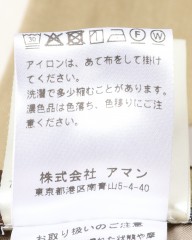 アイロンは、あて布をして掛け
てください。
洗濯で多少縮むことがあります。
濃色品は色落ち、色移りにご注
意ください。
株式会社 アマン
東京都港区南青山5-4-40
お取り扱いのご注意